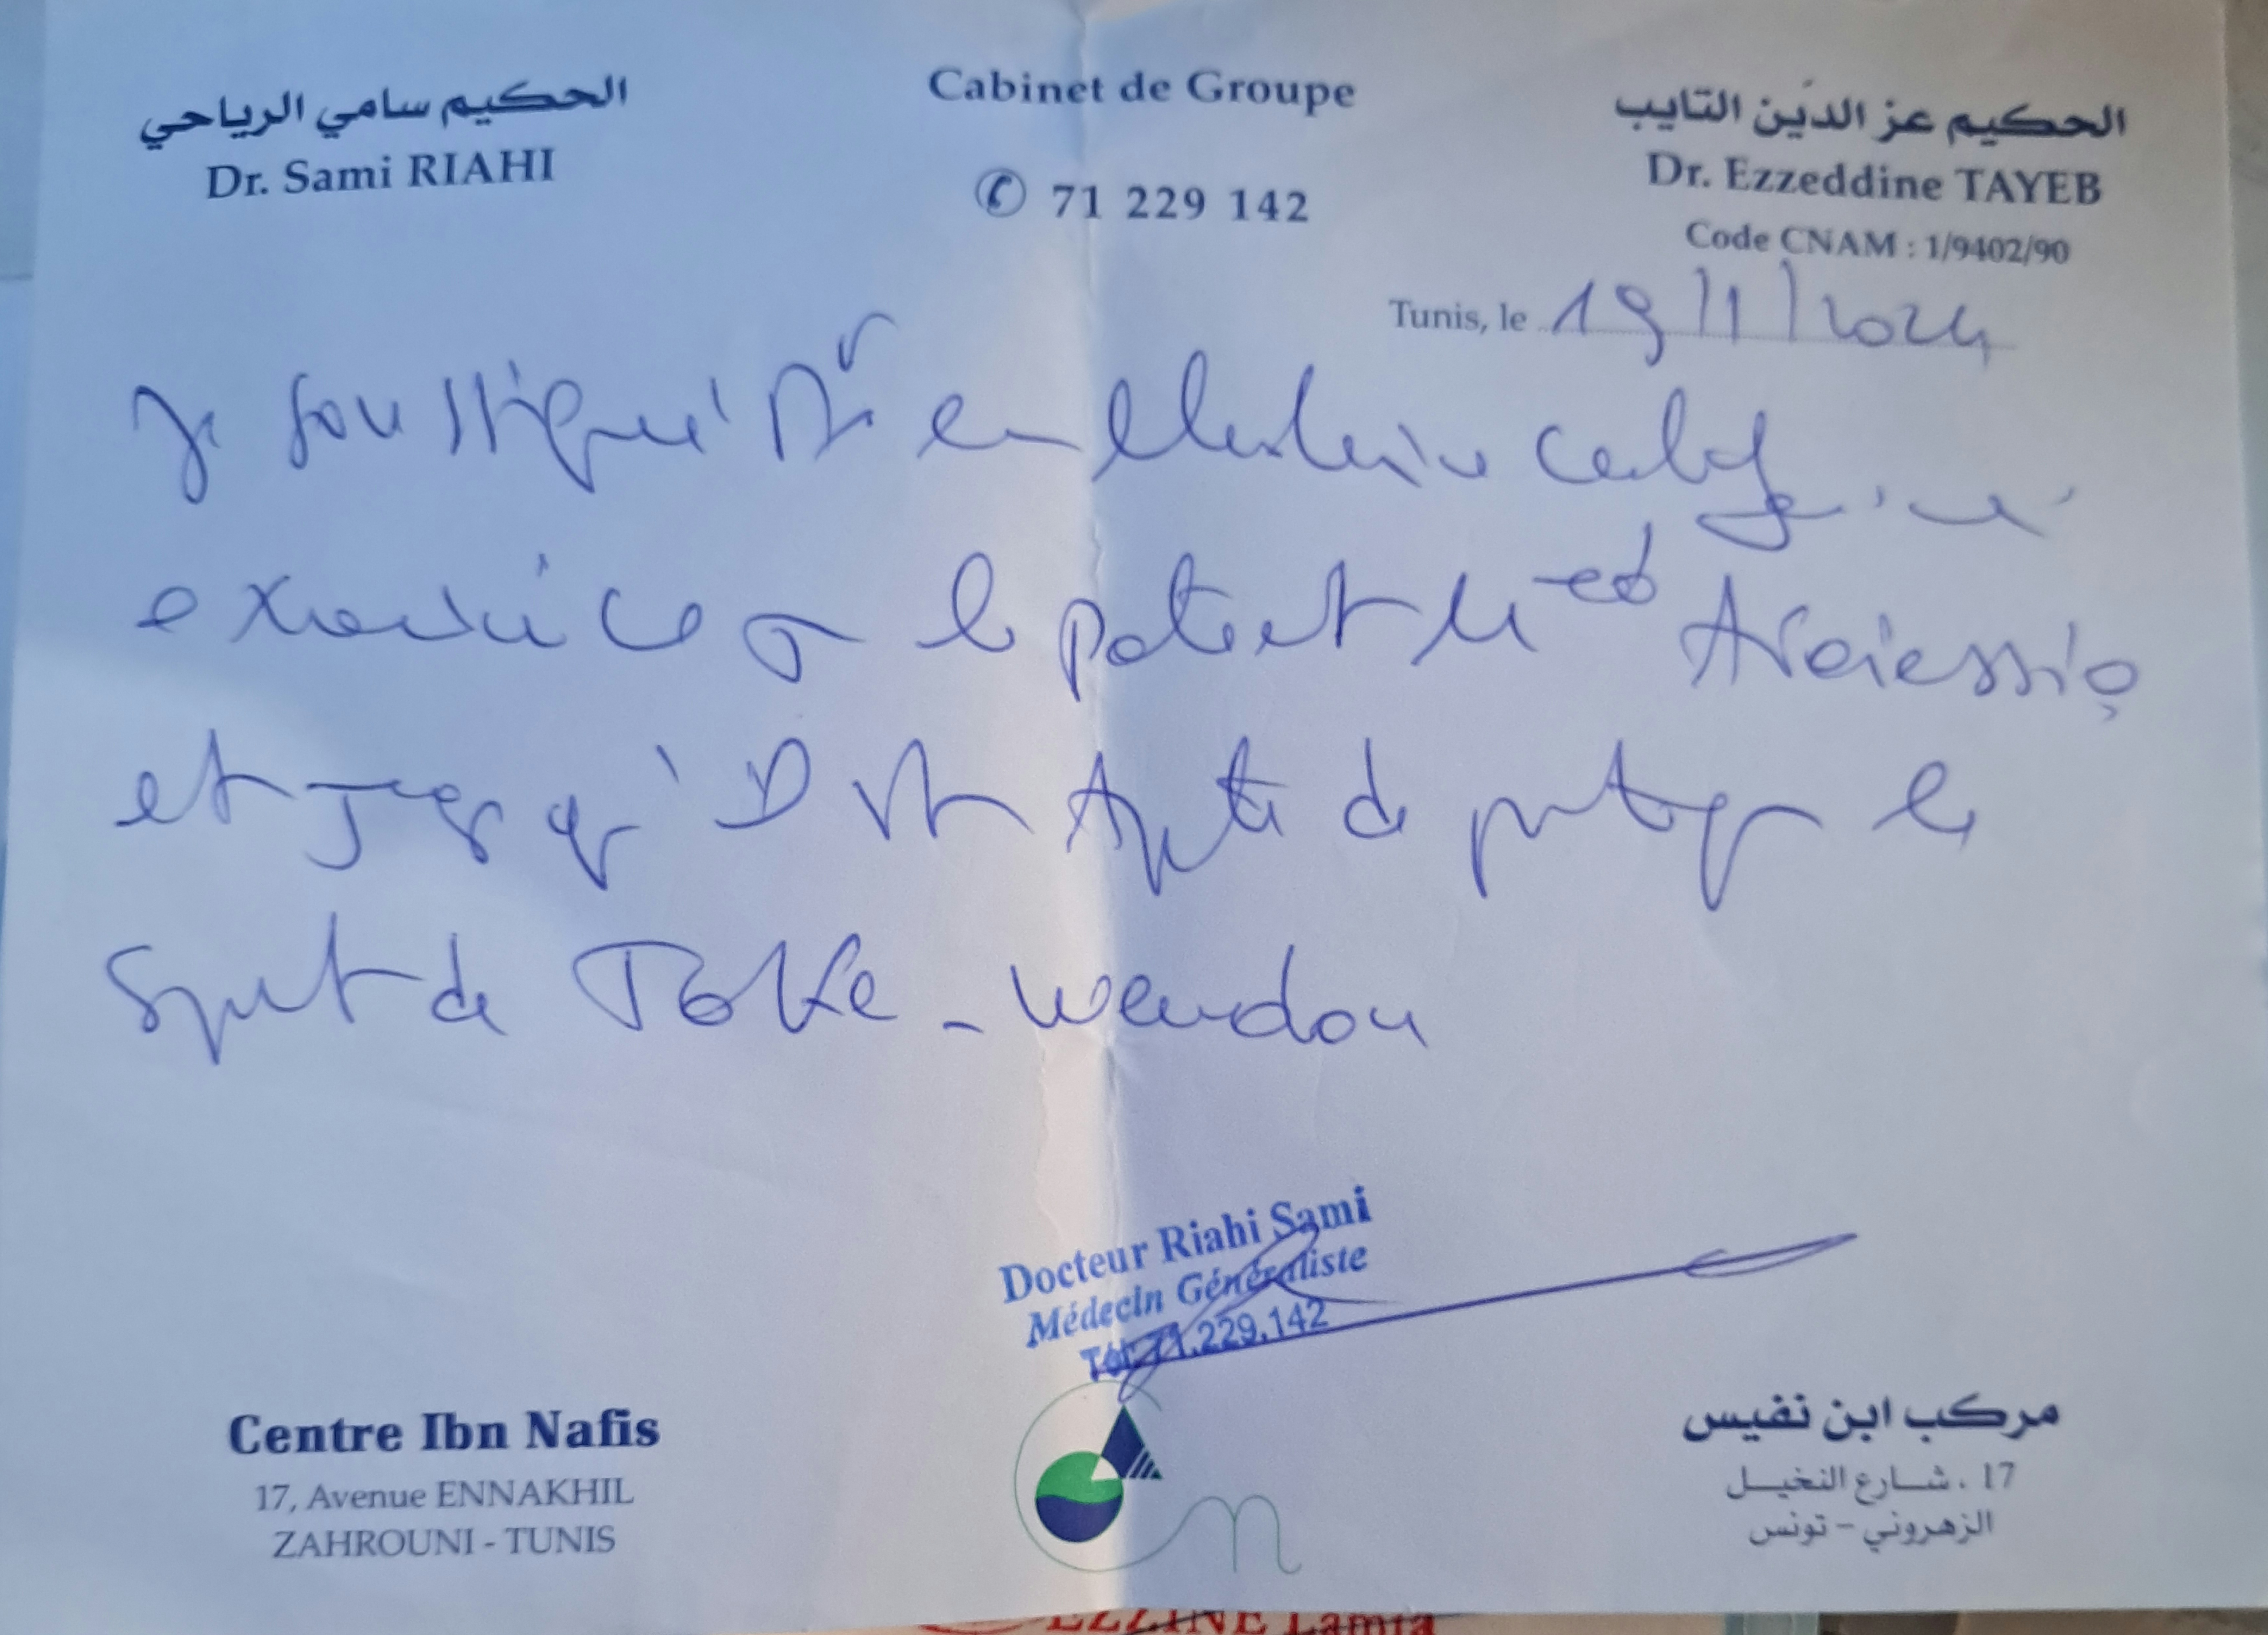 الحكيم سامي الرياحي
Dr. Sami RIAHI
Cabinet de Groupe
✆ 71 229 142
الحكيم عز الدين التايب
Dr. Ezzeddine TAYEB
Code CNAM : 1/9402/90
Tunis, le 19/1/2024
Je soussigné Dr en Médecine certifie avoir
examiné ce jour le patient Med
et juge qu'il est Apte de pratiquer le
Sport de
Docteur Riahi Sami
Médecin Généraliste
Tél: 71.229.142
Centre Ibn Nafis
17, Avenue ENNAKHIL
ZAHROUNI - TUNIS
مركب ابن نفيس
17 . شارع النخيل
الزهروني - تونس
EZZINE Lamia